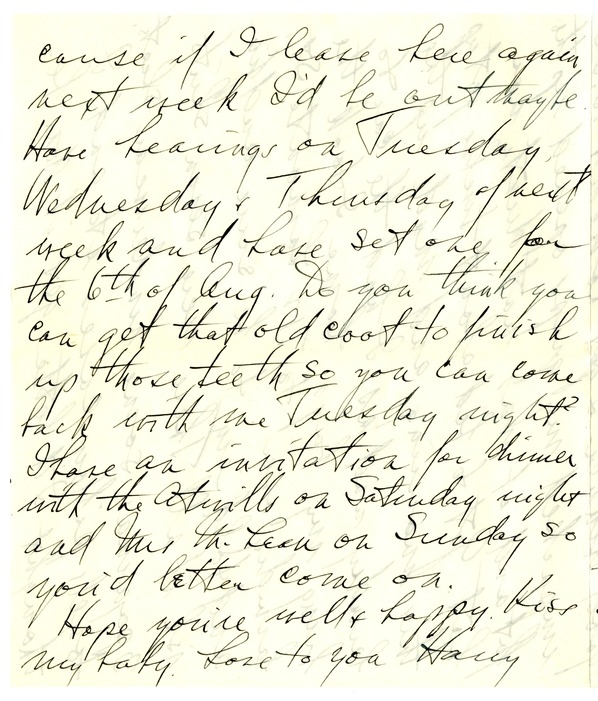 cause if I leave here again
next week I'd be out maybe.
Have hearings on Tuesday,
Wednesday & Thursday of next
week and have set one for
the 6th of Aug. Do you think you
can get that old coot to finish
up those teeth so you can come
back with me Tuesday night?
I have an invitation for dinner
with the Atwills on Saturday night
and Mrs McLean on Sunday so
you'd better come on.
Hope you're well & happy. Kiss
my baby. Love to you Harry